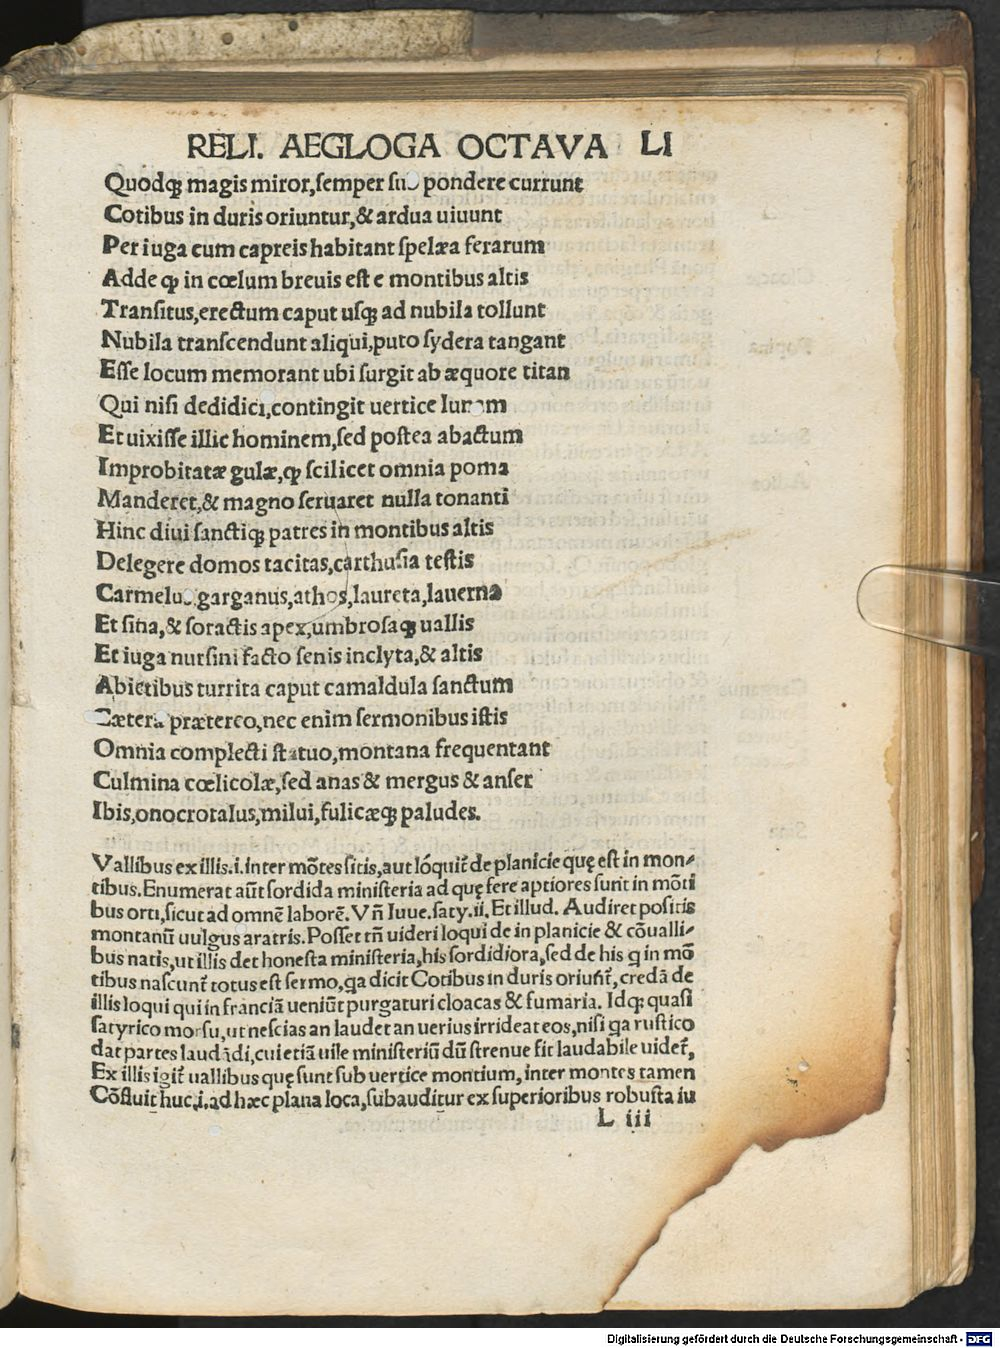 RELI. AEGLOGA OCTAVA LI
Quodqꝫ magis miror,semper sub pondere currunt
Cotibus in duris oriuntur,& ardua uiuunt
Per iuga cum capreis habitant spelæa ferarum
Adde ꝙ in cœlum breuis est e montibus altis
Transitus,erectum caput usqꝫ ad nubila tollunt
Nubila transcendunt aliqui,puto sydera tangant
Esse locum memorant ubi surgit ab æquore titan
Qui nisi dedidici,contingit uertice lunam
Et uixisse illic hominem,sed postea abactum
Improbitatæ gulæ,ꝙ scilicet omnia poma
Manderet,& magno seruaret nulla tonanti
Hinc diui sanctiqꝫ patres in montibus altis
Delegere domos tacitas,carthusia testis
Carmelus garganus,athos,laureta,lauerna
Et sina,& soractis apex,umbrosaqꝫ uallis
Et iuga nursini facto senis inclyta,& altis
Abietibus turrita caput camaldula sanctum
Cætera prætereo,nec enim sermonibus istis
Omnia complecti statuo,montana frequentant
Culmina cœlicolæ,sed anas & mergus & anser
Ibis,onocrotalus,milui,fulicæqꝫ paludes.
Vallibus ex illis.i.inter mõtes sitis,aut lóquit̃ de planicie quę est in mon⸗
tibus.Enumerat aũt sordida ministeria ad quę fere aptiores sunt in mõti
bus orti,sicut ad omnẽ laborẽ.Vñ Iuue.saty.ii.Et illud. Audiret positis
montanũ uulgus aratris.Posset tñ uideri loqui de in planicie & cõualli⸗
bus natis,ut illis det honesta ministeria,his sordidiora,sed de his q in mõ
tibus nascunt̃ totus est sermo,qa dicit Cotibus in duris oriunt̃,credã de
illis loqui qui in franciã ueniũt purgaturi cloacas & fumaria. Idqꝫ quasi
satyrico morsu,ut nescias an laudet an uerius irrideat eos,nisi qa rustico
dat partes laudãdi,cui etiã uile ministeriũ dũ strenue fit laudabile uidet̃,
Ex illis igit̃ uallibus quę sunt sub uertice montium,inter montes tamen
Cõfluit huc.i.ad hæc plana loca,subauditur ex superioribus robusta iu
L iii
Digitalisierung gefördert durch die Deutsche Forschungsgemeinschaft - DFG